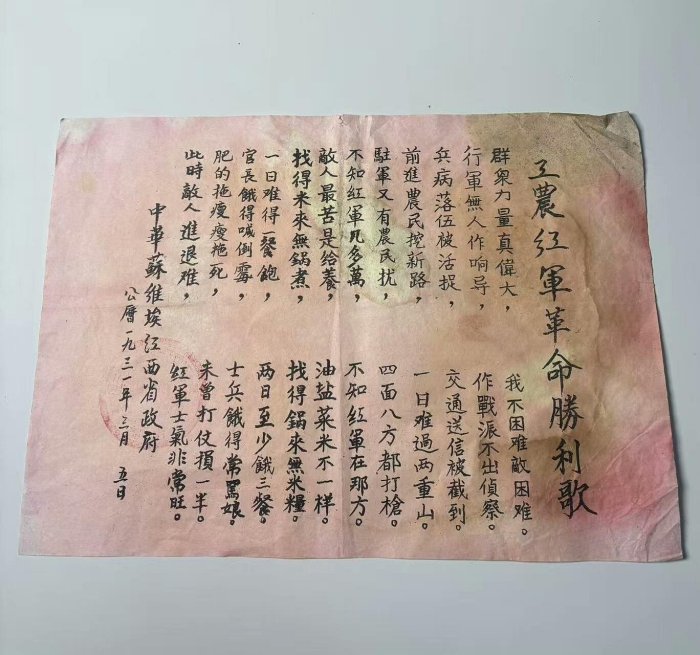 工農红軍革命勝利歌
群衆力量真偉大，我不困难敵困难。
行軍無人作响导，作戰派不出偵察。
兵病落伍被活捉，交通送信被截到。
前進農民挖新路，一日难過两重山。
駐軍又有農民扰，四面八方都打槍。
不知红軍几多萬，不知红軍在那方。
敵人最苦是给養，油盐菜米不一样。
找得米來無鍋煮，找得鍋來無米糧。
一日难得一餐飽，两日至少餓三餐。
官長餓得喊倒霉，士兵餓得常罵娘。
肥的拖瘦瘦拖死，未曾打仗損一半。
此時敵人進退难，红軍士氣非常旺。
中華蘇维埃江西省政府
公曆一九三一年三月五日